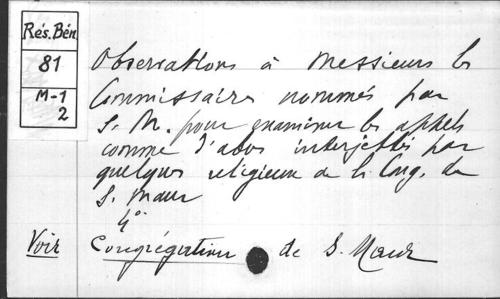 Rés. Bén
81
M-1
2
Observations à Messieurs les
Commissaires nommés par
S. M. pour examiner les appels
comme d'abus interjettés par
quelques religieux de la Cong. de
S. Maur
4°
Voir Congrégation de S. Maur